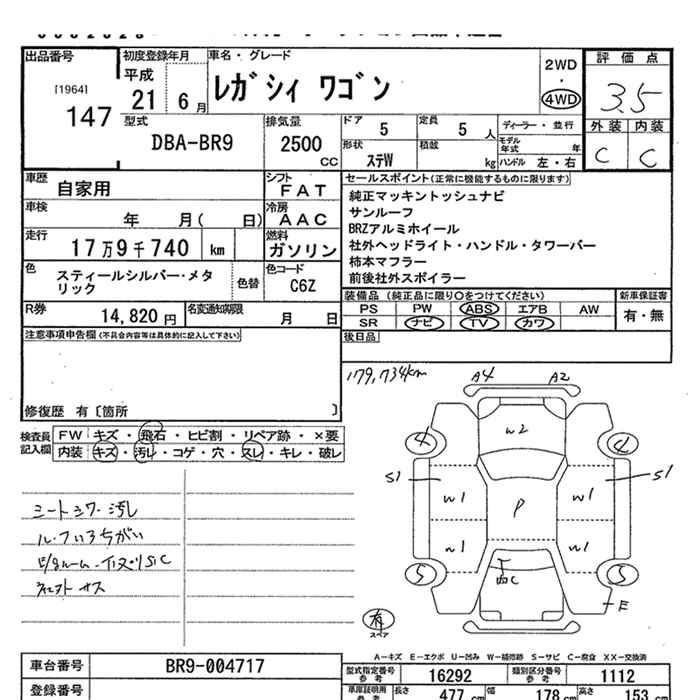 出品番号
[1964]
147
初度登録年月
平成
21 6 月
車名・グレード
ﾚｶﾞｼｨ ﾜｺﾞﾝ
2WD
・
4WD
評価点
3.5
外装 内装
C C
型式
DBA-BR9
排気量
2500
CC
ドア
5
定員
5 人
ディーラー・並行
形状
ステW
積載
kg
モデル年式 年
ハンドル 左・右
車歴
自家用
シフト
FAT
車検
年 月( 日)
冷房
AAC
走行
17万9千740 km
燃料
ガソリン
色
スティールシルバー・メタ
リック
色替
色コード
C6Z
R券
14,820 円
名変通知期限
月 日
セールスポイント(正常に機能するものに限ります)
純正マッキントッシュナビ
サンルーフ
BRZアルミホイール
社外ヘッドライト・ハンドル・タワーバー
柿本マフラー
前後社外スポイラー
装備品(純正品に限り○をつけてください)
新車保証書
PS PW ABS エアB AW
SR ナビ TV カワ
有・無
後日品
注意事項申告欄(不具合内容等は具体的に記入して下さい)
修復歴 有〔箇所 〕
179,734km
検査員
記入欄
FW キズ・飛石・ヒビ割・リペア跡・×要
内装 キズ・汚レ・コゲ・穴・スレ・キレ・破レ
シートシワ・汚し
ルーフいろちがい
A4 A2
W2
4 4
S1 S1
W1 W1
P
W1 W1
5 5
E
有
スペア
A-キズ E-エクボ U-凹み W-補修跡 S-サビ C-腐食 XX-交換済
車台番号
BR9-004717
登録番号
型式指定番号
参考
16292
類別区分番号
参考
1112
車庫証明用
参考
長さ 477 cm 幅 178 cm 高さ 153 cm